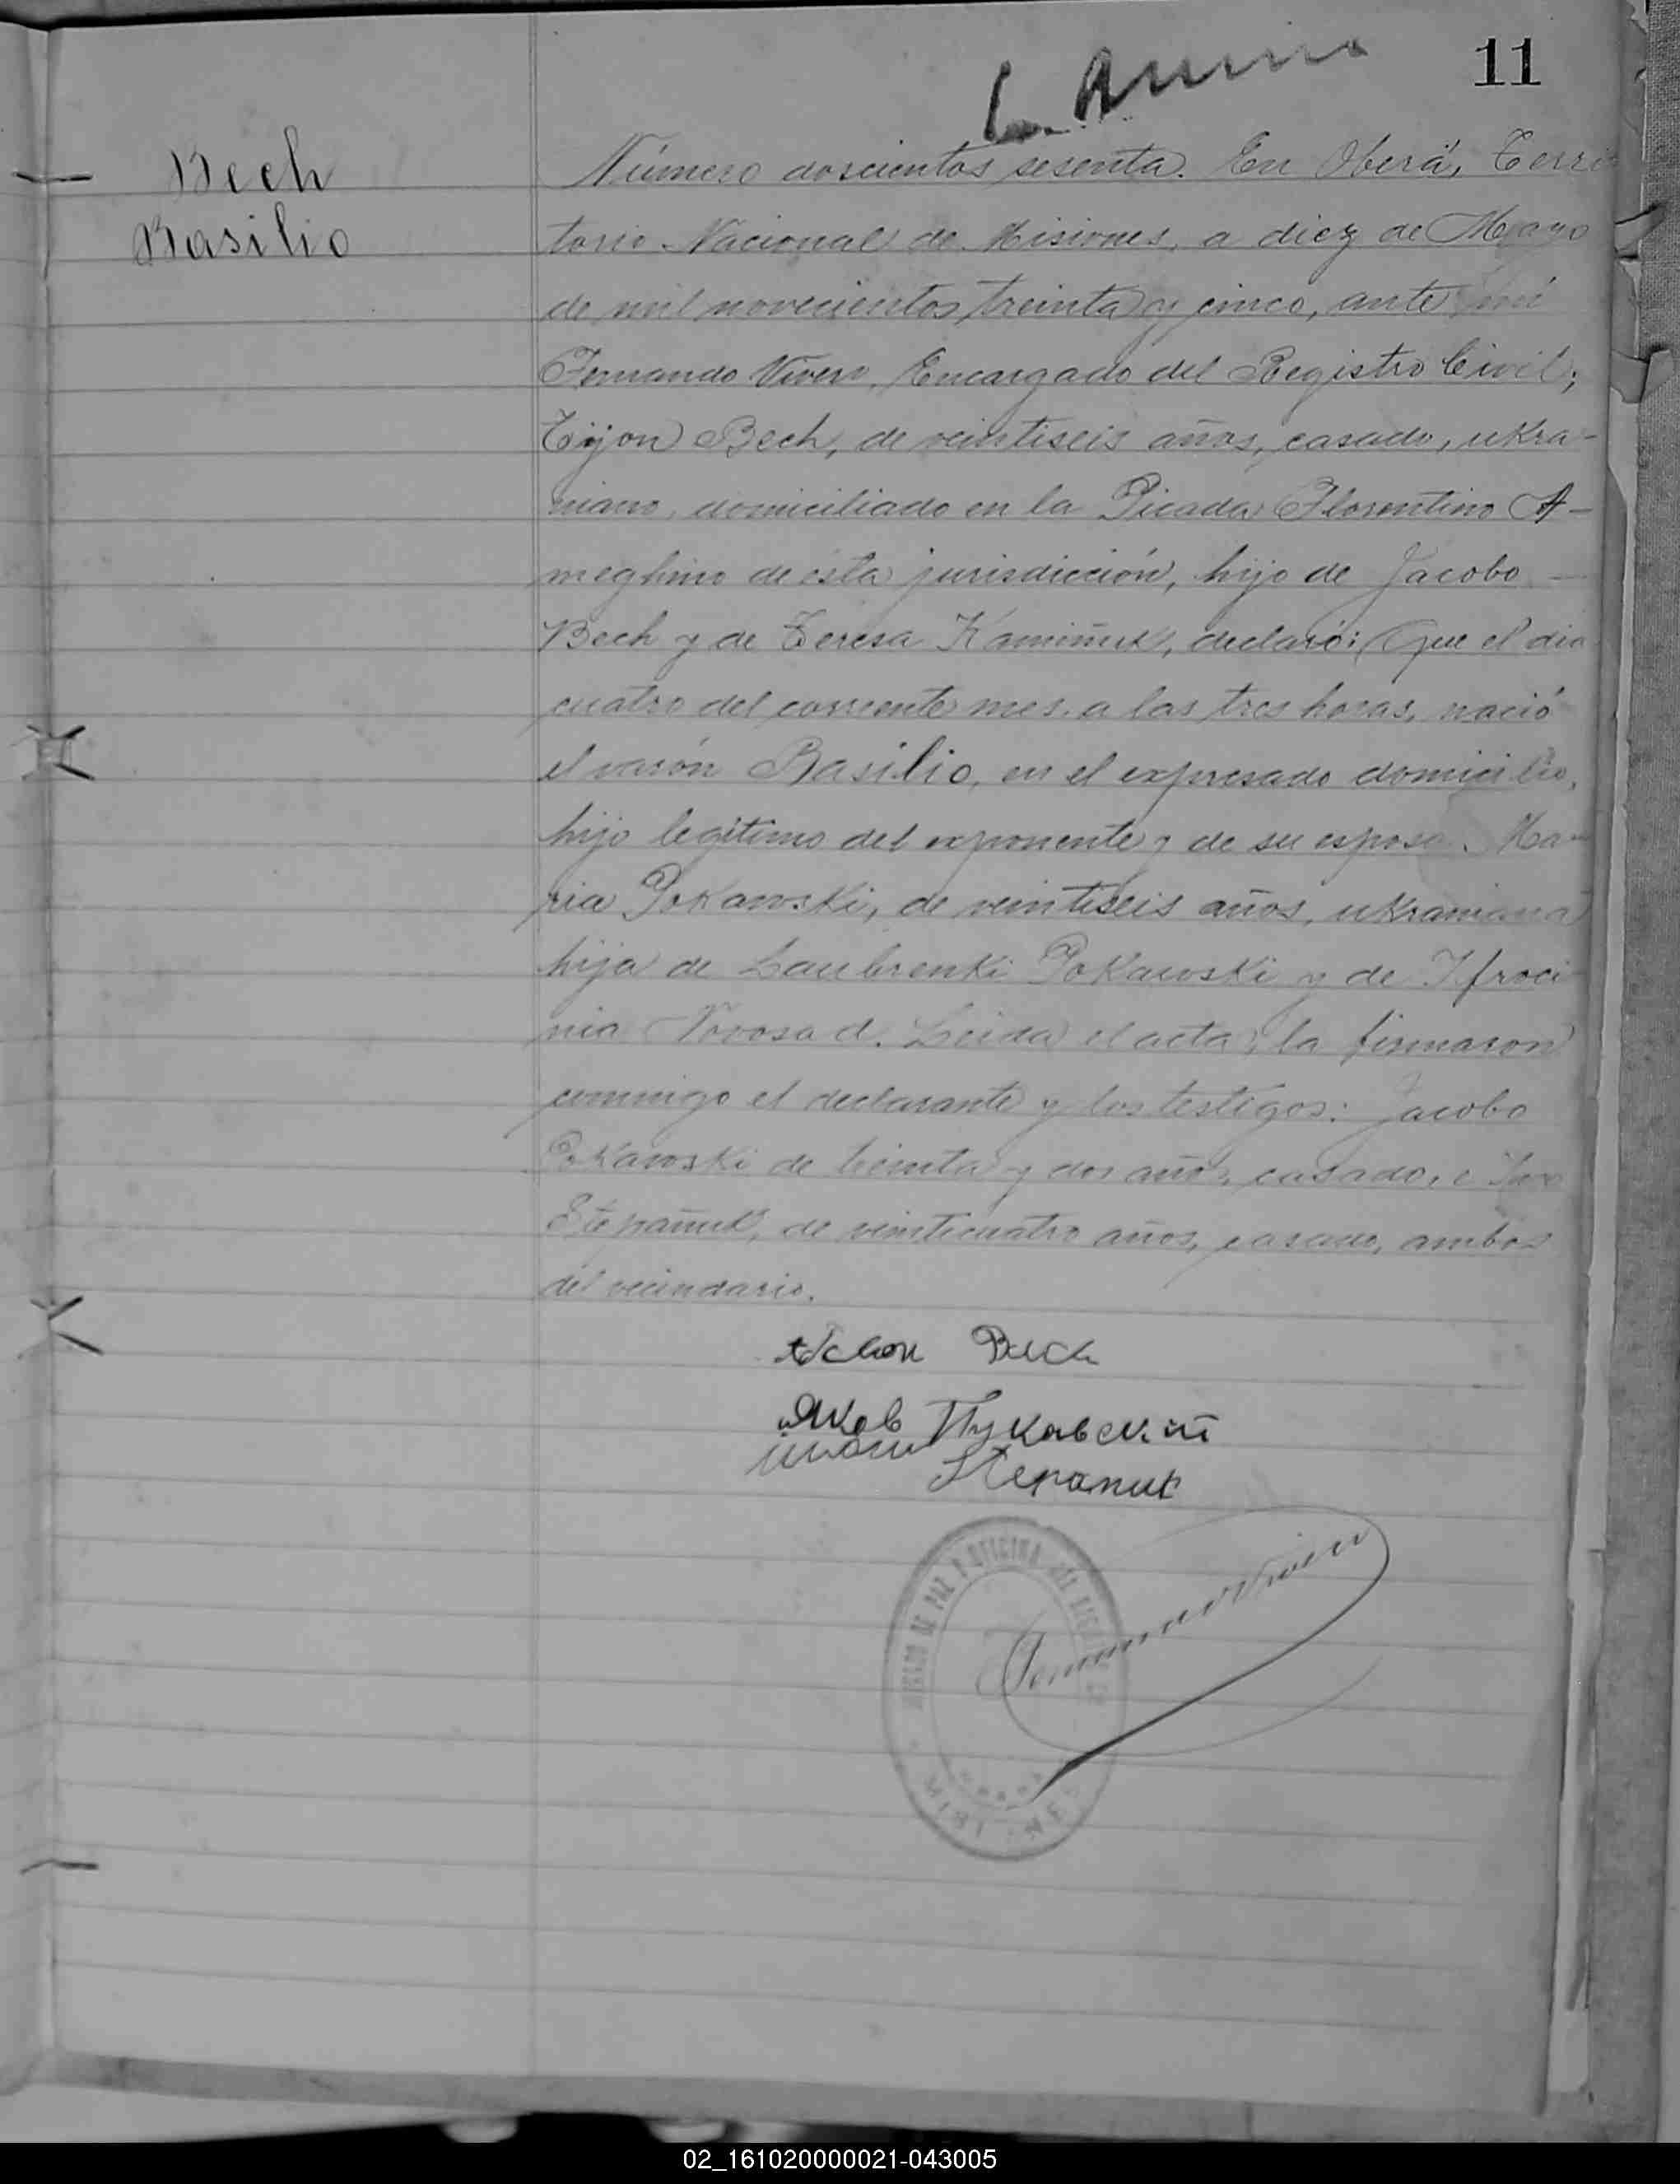 11
Bech
Basilio
Número doscientos sesenta. En Oberá, Terri
torio Nacional de Misiones, a diez de Mayo
de mil novecientos treinta y cinco, ante mí
Fernando Vivero, Encargado del Registro Civil;
Tijon Bech, de veintiseis años, casado, ukra-
niano, domiciliado en la Picada Florentino A-
meghino de ésta jurisdicción, hijo de Jacobo —
Bech y de Teresa Kamiñuk, declaró: Que el dia
cuatro del corriente mes, a las tres horas, nació
el varón Basilio, en el expresado domicilio,
hijo legítimo del exponente y de su esposa Ma-
ria Pokawski, de veintiseis años, ukraniana
hija de Laubrenki Pokawski y de Ifroci
nia Novosad. Leida el acta, la firmaron
conmigo el declarante y los testigos: Jacobo
Pokawski de treinta y dos años, casado, e
Stepañuk, de veinticuatro años, casado, ambos
del vecindario.
Bech
Яков Пукавский
Stepaniuk
JUZGADO DE PAZ Y OFICINA DEL
MISIONES
Fernando Vivero
02_161020000021-043005